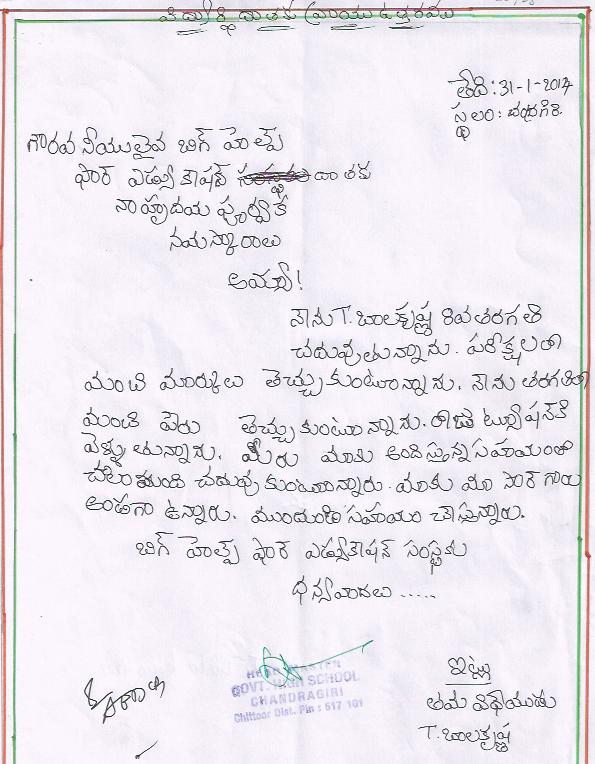 విద్యార్థి దాతకు వ్రాయు ఉత్తరము
తేది: 31-1-2017
స్థలం: చంద్రగిరి
గౌరవ నీయులైన బిగ్ హెల్ప్
ఫార్ ఎడ్యుకేషన్ దాతకు
నా హృదయ పూర్వక
నమస్కారాలు
అమ్మా!
నేను T. బాలకృష్ణ 8వ తరగతి
చదువుతున్నాను. పరీక్షలలో
మంచి మార్కులు తెచ్చుకుంటూన్నాను. నేను తరగతిలో
మంచి పేరు తెచ్చుకుంటూన్నాను. రోజు ట్యూషన్‌కి
వెళ్ళుతున్నాను. మీరు మాకు అందిస్తున్న సహాయంతో
చాలామంది చదువుకుంటూన్నారు. మాకు మా సార్ గారు
అండగా ఉన్నారు. ముందుండి సహాయం చేస్తున్నారు.
బిగ్ హెల్ప్ ఫార్ ఎడ్యుకేషన్ సంస్థకు
ధన్యవాదలు .....
HEAD MASTER
GOVT. HIGH SCHOOL
CHANDRAGIRI
Chittoor Dist. Pin : 517 101
ఇట్లు
తమ విధేయుడు
T. బాలకృష్ణ